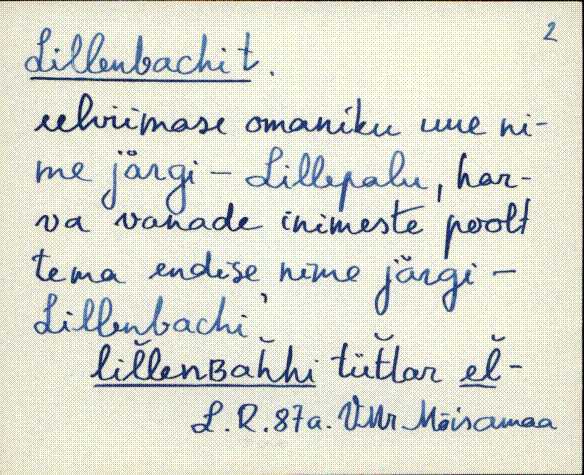 2
Lillenbachi t.
eelviimase omaniku uue ni-
me järgi – Lillepalu, har-
va vanade inimeste poolt
tema endise nime järgi –
Lillenbachi,
lil̆lenʙah̆hi tüt̆lar el̆-
L. R. 87a. VMr Mõisamaa